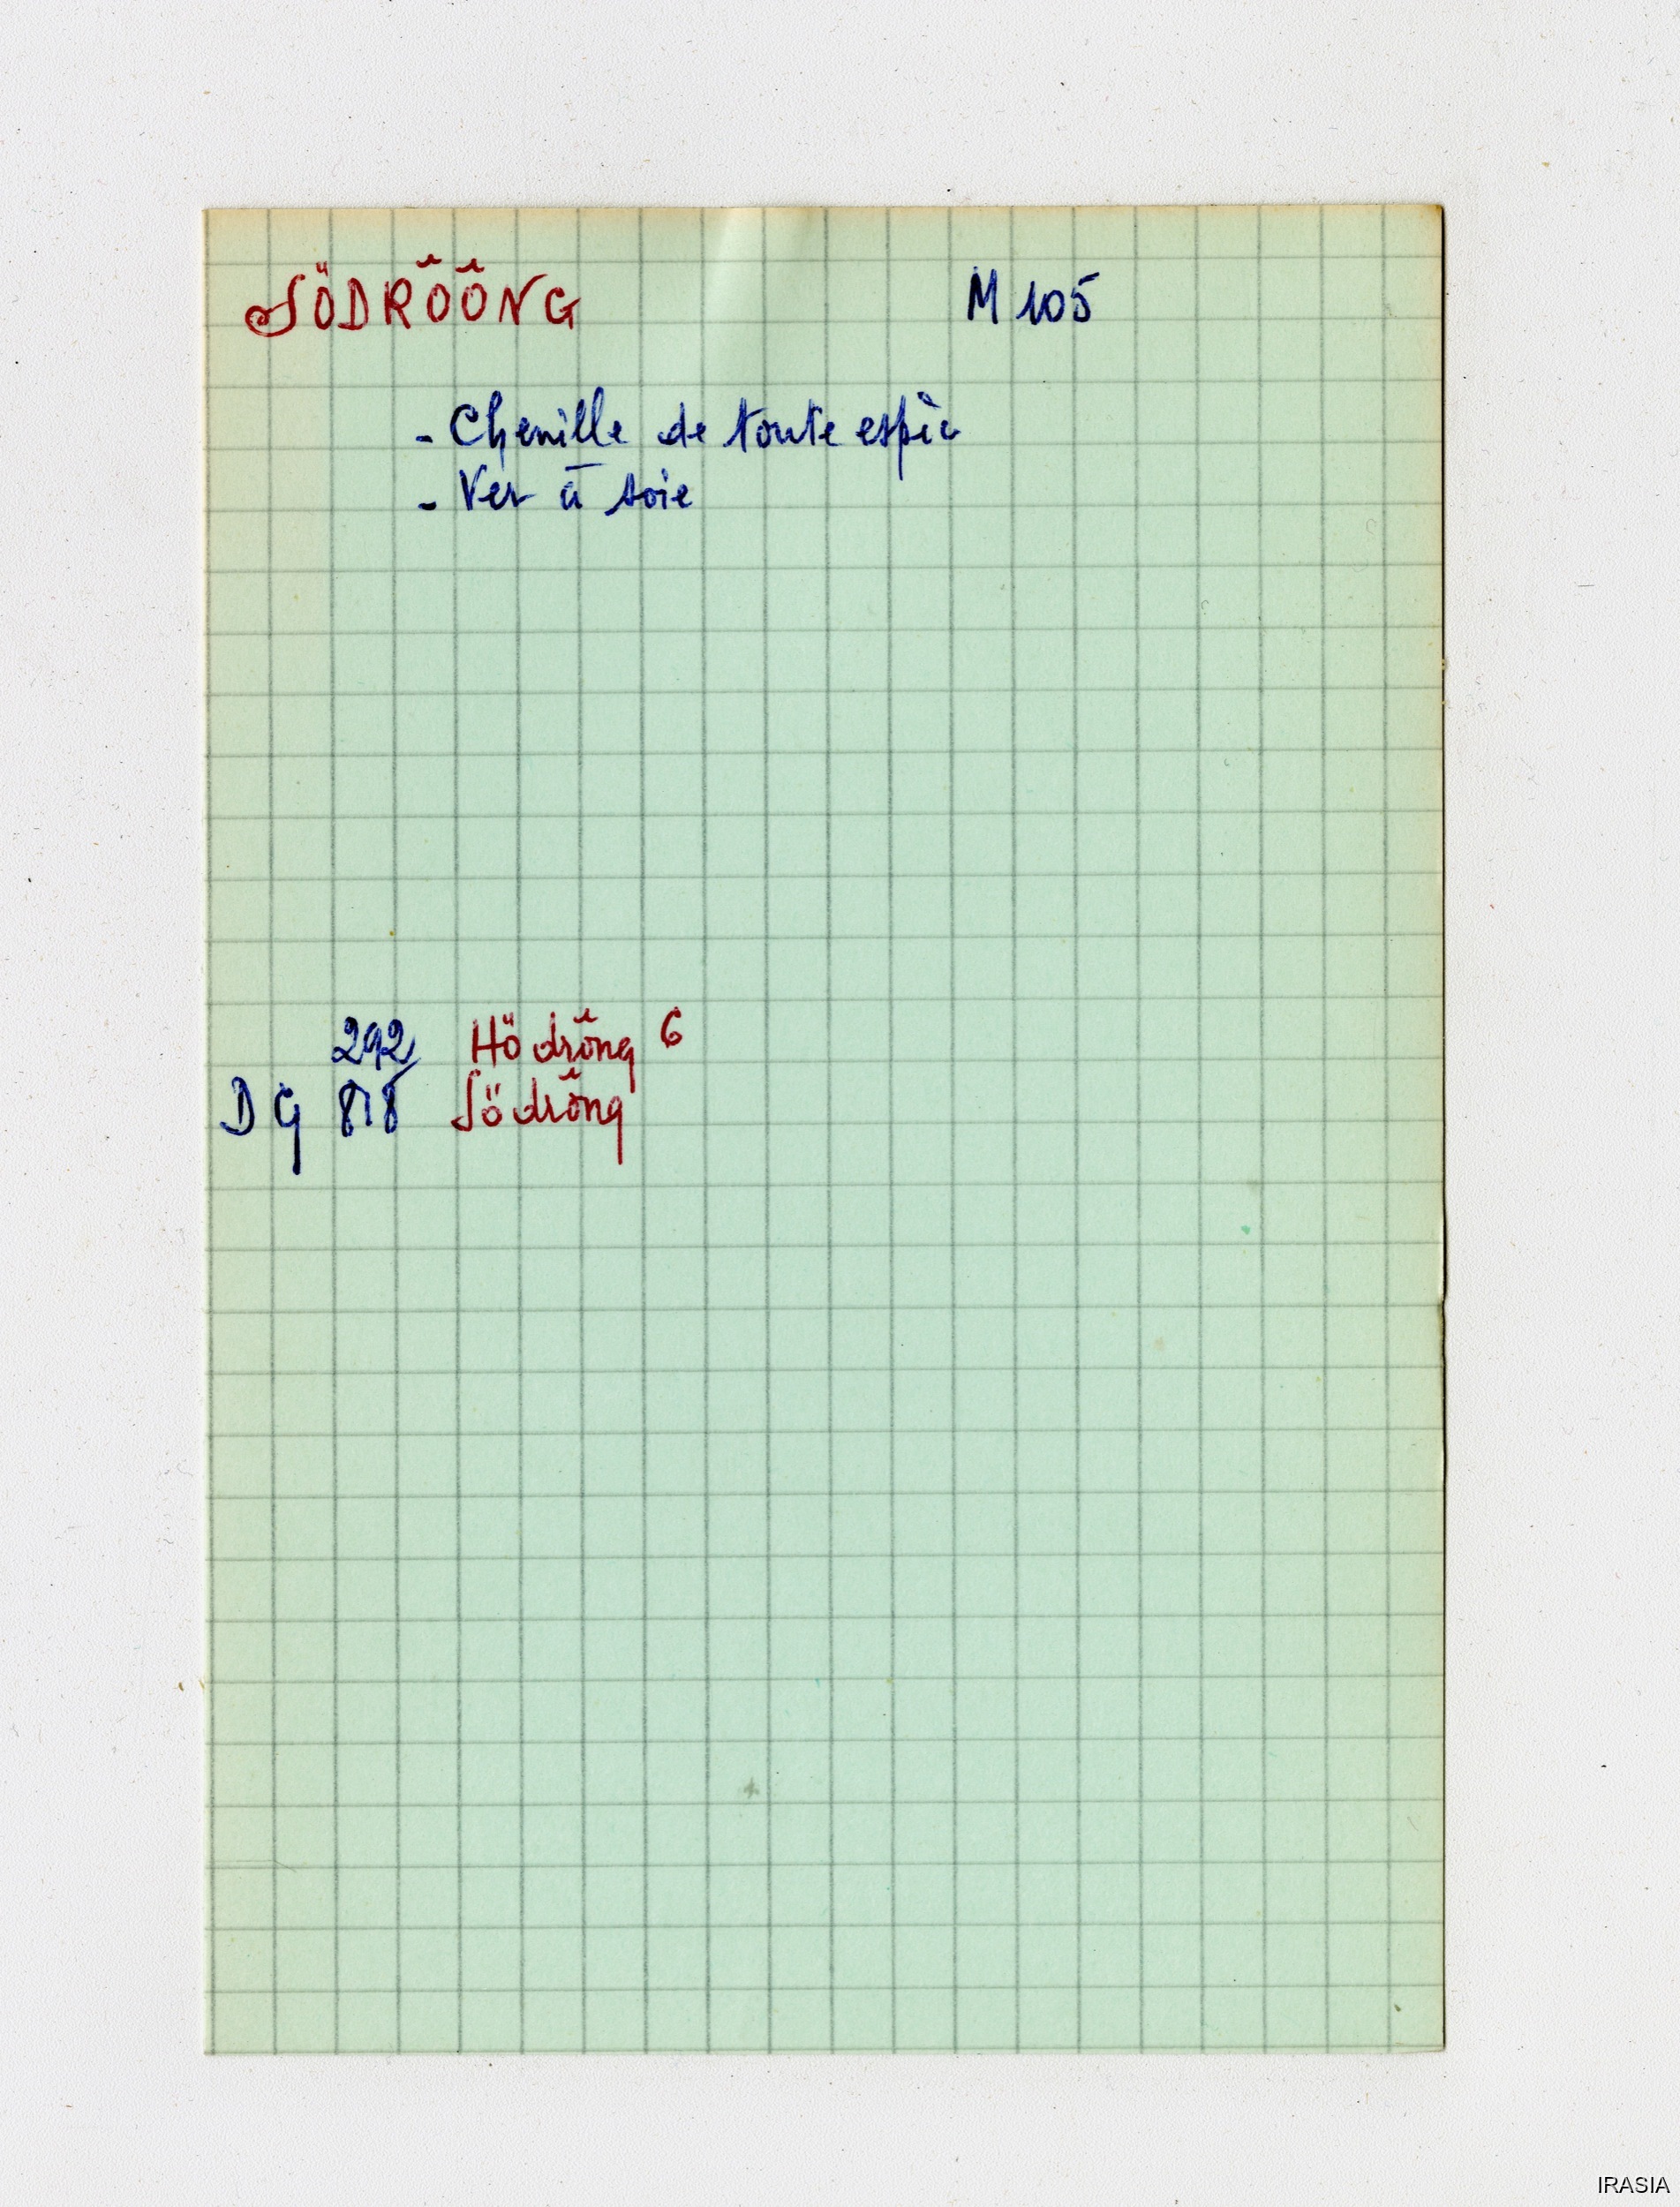 SÖDRỠỠNG M 105
- Chenille de toute espèce
- Ver à soie
292 Hödrỡng 6
DG 818 Södrỡng
IRASIA